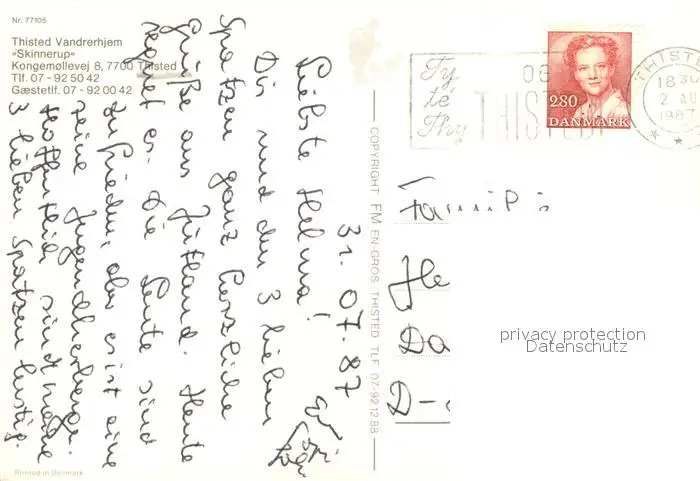 Nr. 77105
Thisted Vandrerhjem
"Skinnerup"
Kongemøllevej 8, 7700 Thisted
Tlf. 07 - 92 50 42
Gæstetlf. 07 - 92 00 42
31. 07. 87
Liebste Helma!
Dir und den 3 lieben
Spatzen ganz herzliche
Grüße aus Jütland. Heute
regnet es. Die Leute sind
zufrieden, aber es ist eine
reine Jugendherberge.
Hoffentlich sind
3 lieben Spatzen lustig.
COPYRIGHT FM EN-GROS THISTED TLF 07-92 12 88
Ty
té
Thy
OG
THISTED
2.80
DANMARK
THISTED
18 30
2 AU
1987
Familie
He
Da
D-
privacy protection
Datenschutz
Printed in Denmark